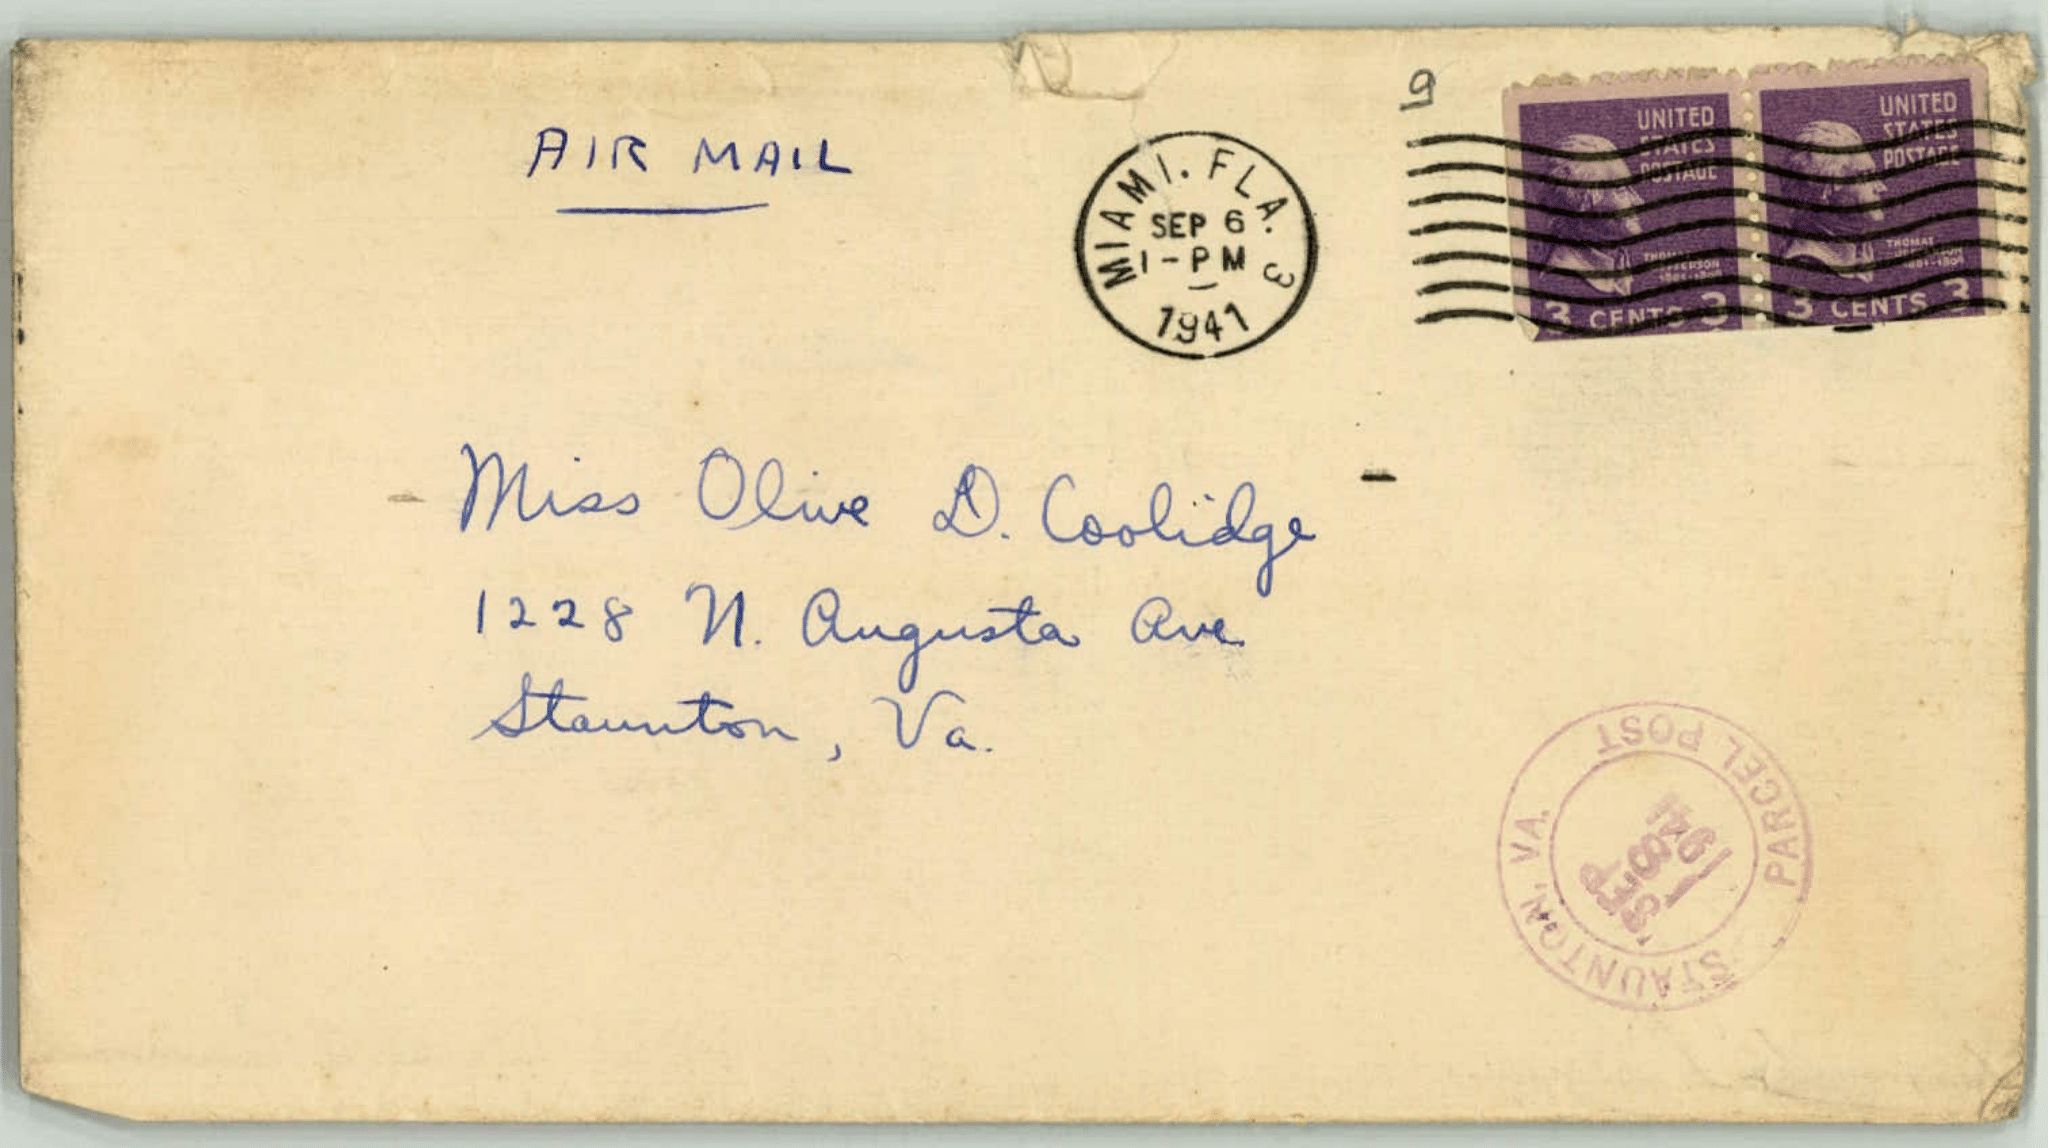 AIR MAIL
MIAMI. FLA. 3
SEP 6
1-PM
1941
UNITED
STATES
POSTAGE
THOMAS
JEFFERSON
3 CENTS 3
UNITED
STATES
POSTAGE
THOMAS
JEFFERSON
3 CENTS 3
Miss Olive D. Coolidge
1228 N. Augusta Ave.
Staunton, Va.
STAUNTON, VA.
PARCEL POST
SEP
8
1941